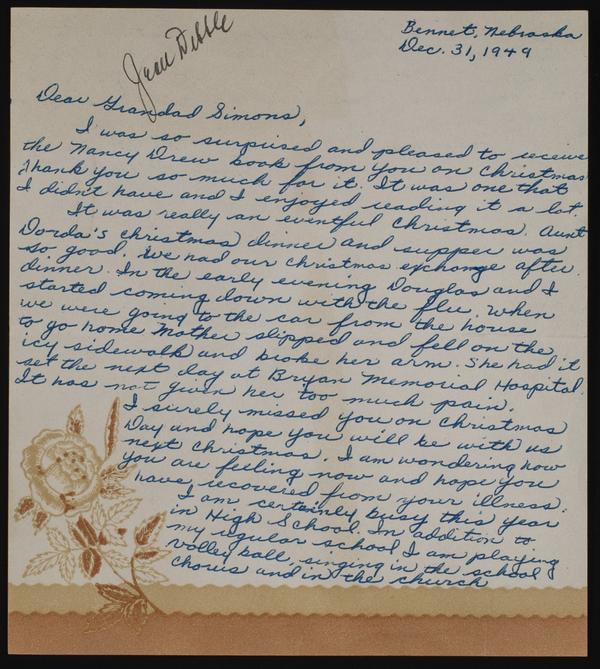 Jean Dibble
Bennet, Nebraska
Dec. 31, 1949
Dear Grandad Simons,
I was so surprised and pleased to receive
the Nancy Drew book from you on Christmas
Thank you so much for it. It was one that
I didn't have and I enjoyed reading it a lot.
It was really an eventful Christmas. Aunt
Dorda's Christmas dinner and supper was
so good. We had our Christmas exchange after
dinner. In the early evening Douglas and I
started coming down with the flu. When
we were going to the car from the house
to go home Mother slipped and fell on the
icy sidewalk and broke her arm. She had it
set the next day at Bryan Memorial Hospital.
It has not given her too much pain.
I surely missed you on Christmas
Day and hope you will be with us
next Christmas. I am wondering how
you are feeling now and hope you
have recovered from your illness.
I am certainly busy this year
in High School. In addition to
my regular school I am playing
volley ball, singing in the school
chorus and in the church